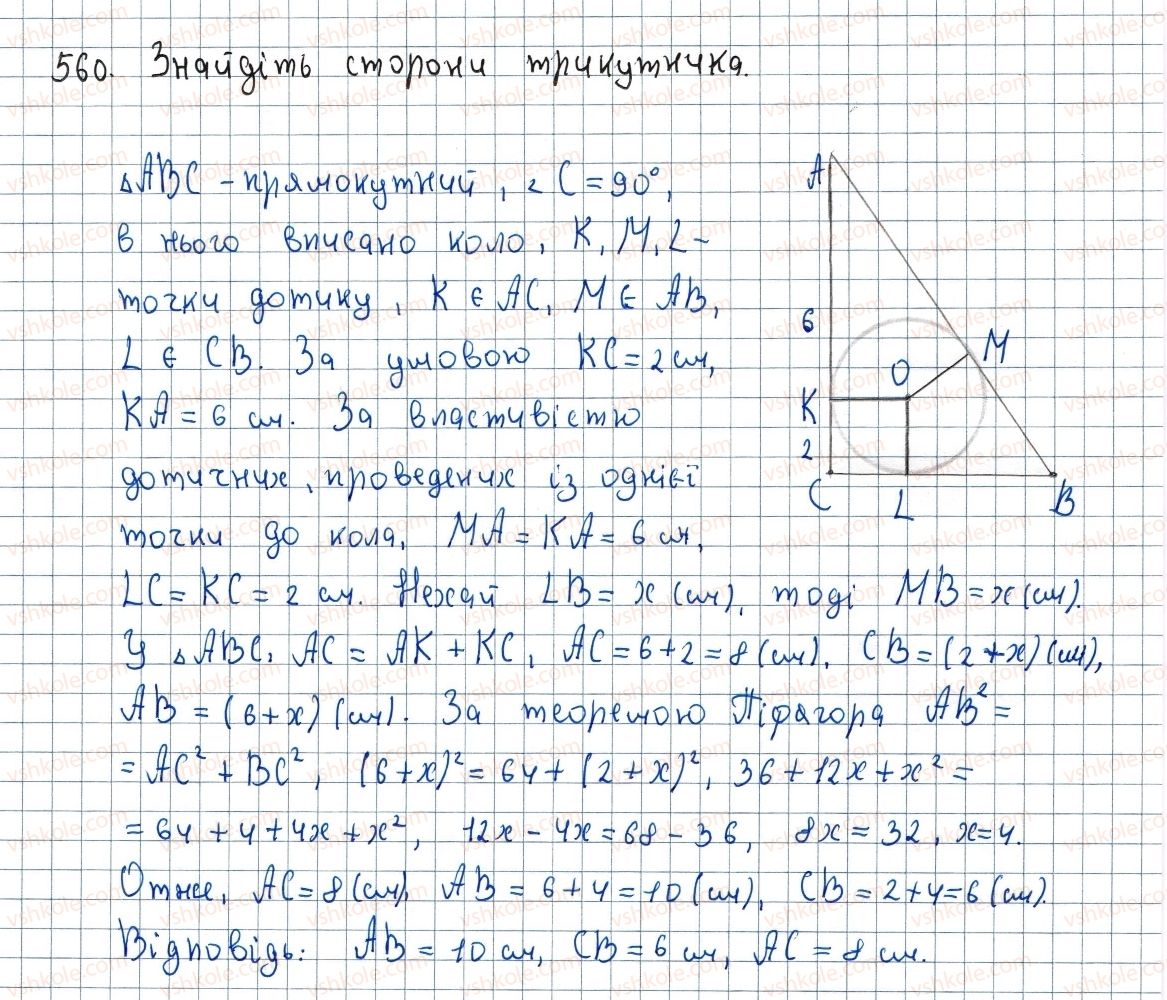 560. Знайдіть сторони трикутника.
△ABC - прямокутний, ∠C = 90°,
в нього вписано коло, K, M, L -
точки дотику, K ∈ AC, M ∈ AB,
L ∈ CB. За умовою KC = 2 см,
KA = 6 см. За властивістю
дотичних, проведених із однієї
точки до кола, MA = KA = 6 см,
LC = KC = 2 см. Нехай LB = x (см), тоді MB = x (см).
У △ABC, AC = AK + KC, AC = 6 + 2 = 8 (см), CB = (2 + x) (см),
AB = (6 + x) (см). За теоремою Піфагора AB² =
= AC² + BC², (6 + x)² = 64 + (2 + x)², 36 + 12x + x² =
= 64 + 4 + 4x + x², 12x - 4x = 68 - 36, 8x = 32, x = 4.
Отже, AC = 8 (см), AB = 6 + 4 = 10 (см), CB = 2 + 4 = 6 (см).
Відповідь: AB = 10 см, CB = 6 см, AC = 8 см.
A
6
M
O
K
2
C
L
B
vshkole.com